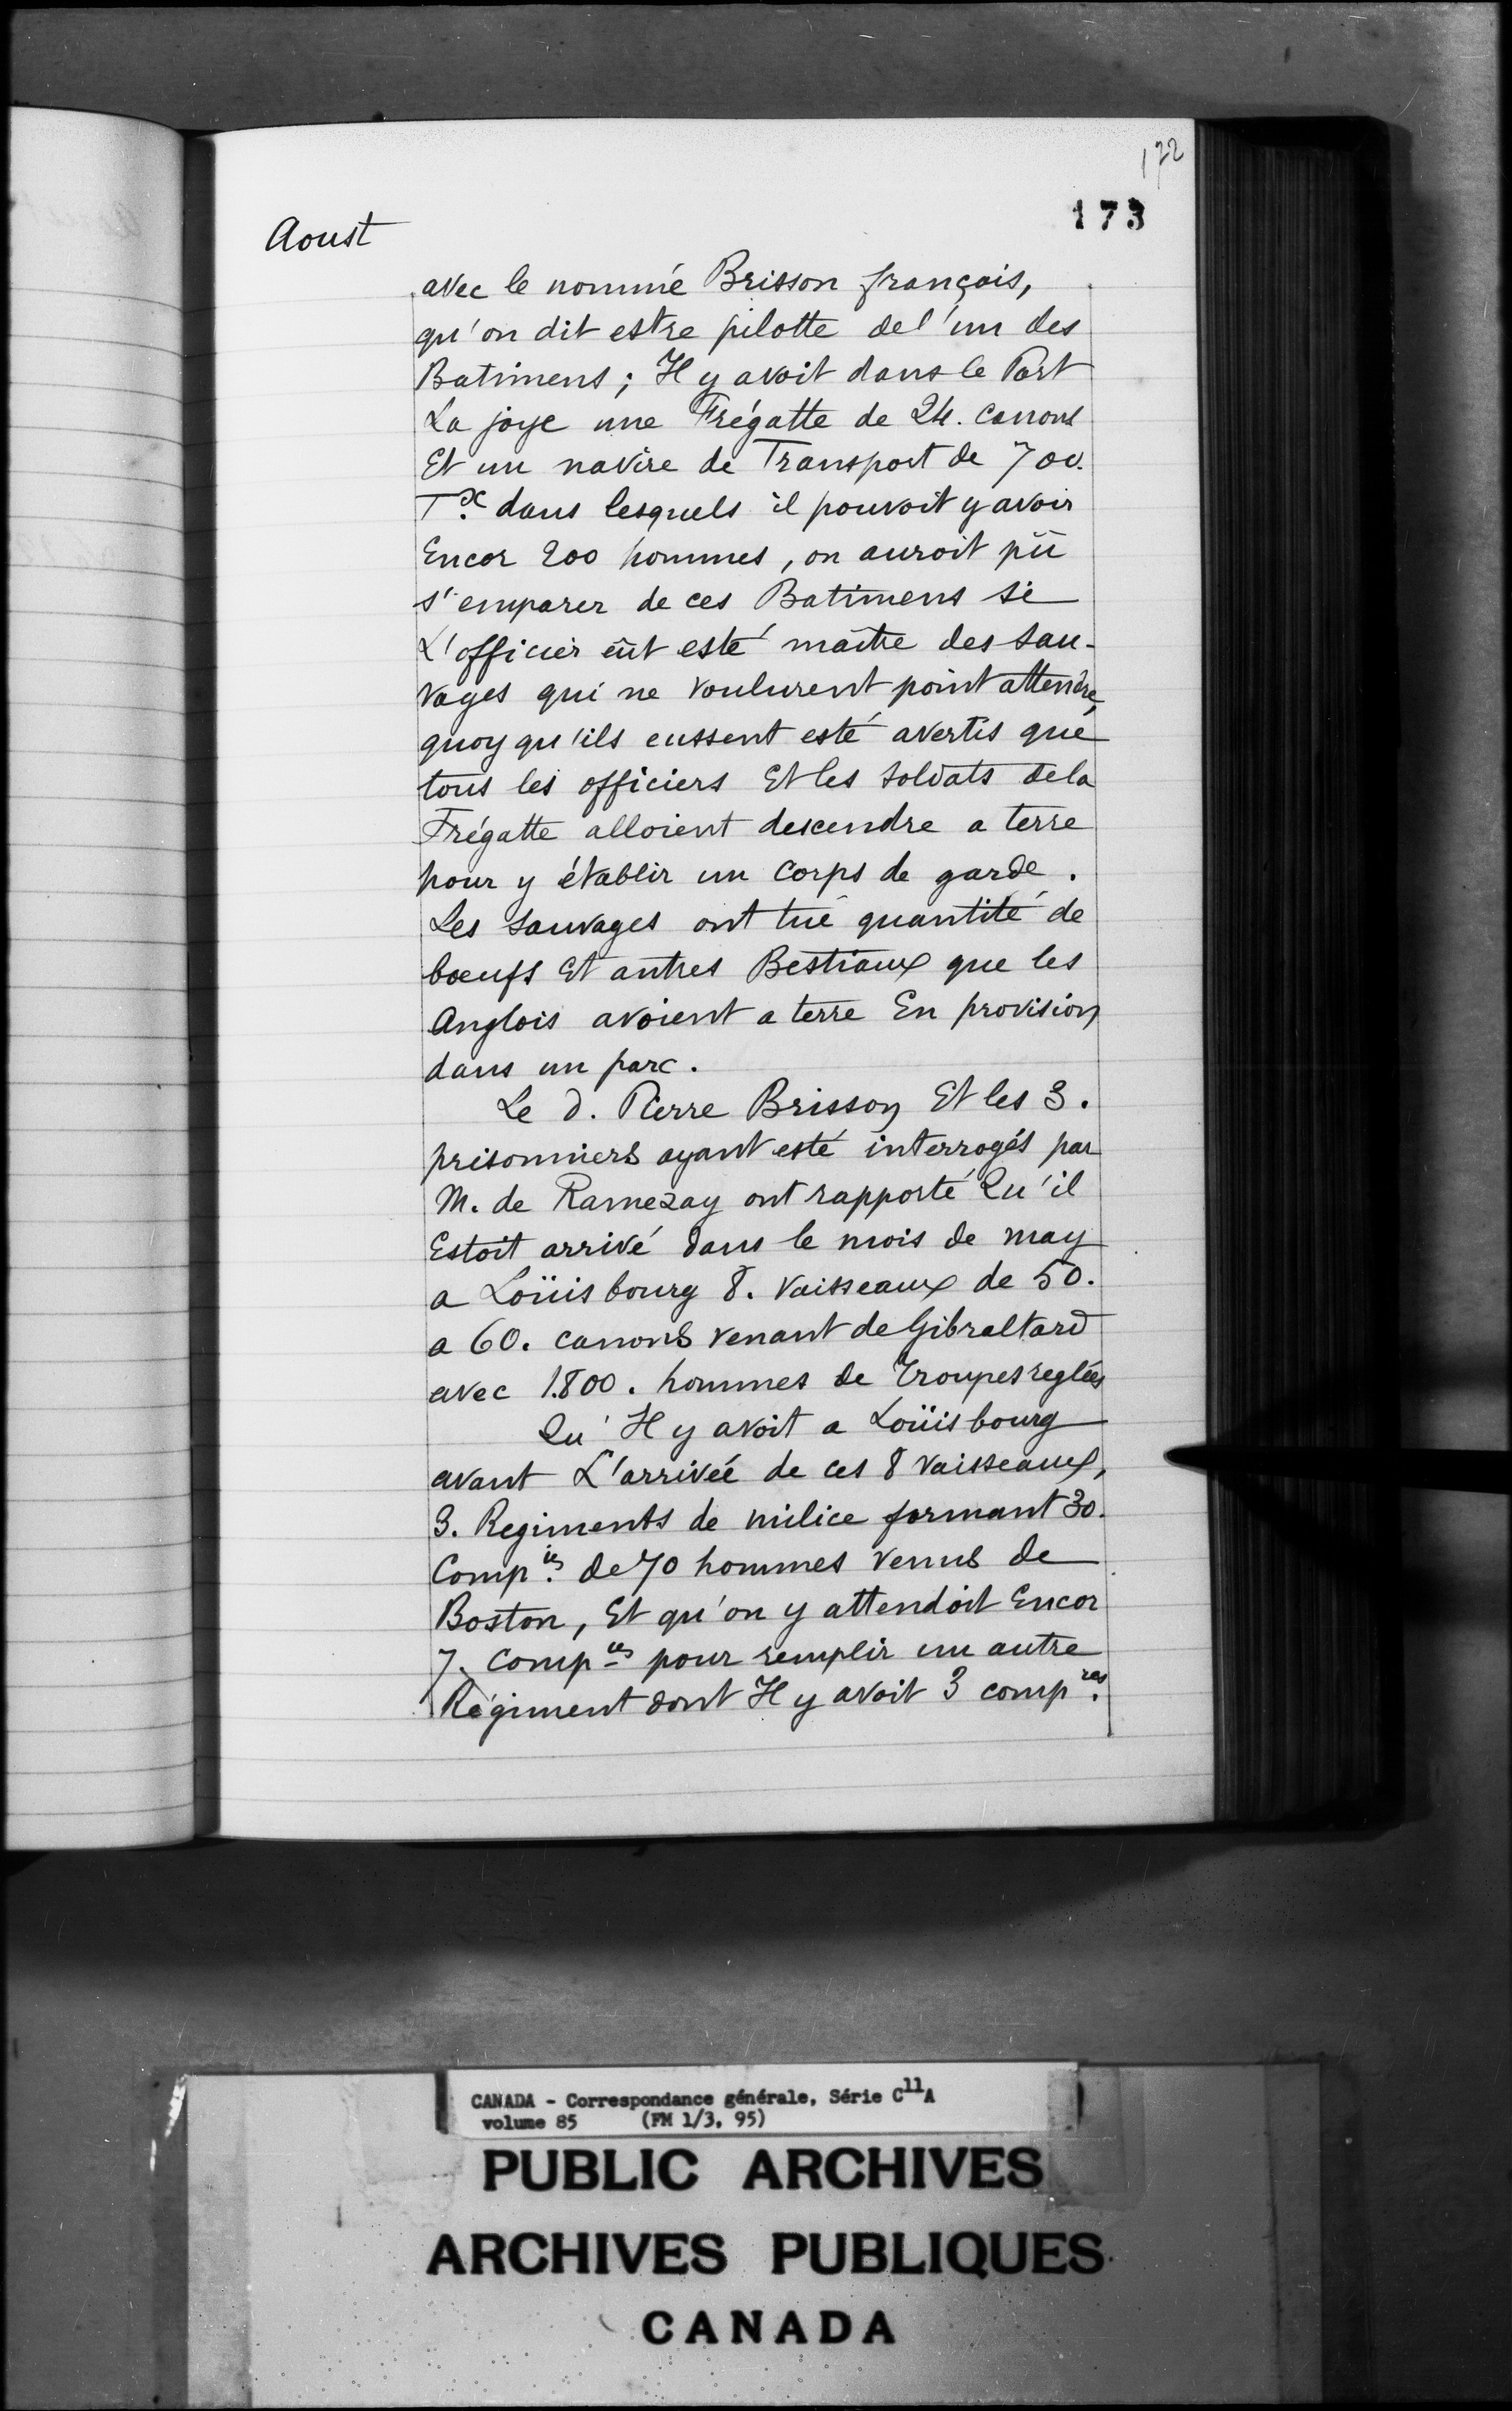 172
173
Aoust
avec le nommé Brisson français,
qu'on dit estre pilotte del'un des
Batimens; Il y avoit dans le Port
La joye une Frégatte de 24. canons
Et un navire de Transport de 700.
Tx. dans lesquels il pouvoit y avoir
Encor 200 hommes, on auroit pü
s'emparer de ces Batimens si
L'officier eüt esté maitre des sau-
vages qui ne voulurent point attendre,
quoy qu'ils eussent esté avertis que
tous les officiers Et les soldats dela
Frégatte alloient descendre a terre
pour y établir un Corps de garde.
Les sauvages ont tué quantité de
boeufs Et autres Bestiaux que les
Anglois avoient a terre En provision
dans un parc.
Le d. Pierre Brisson Et les 3.
prisonniers ayant esté interrogés par
M. de Ramezay ont rapporté Qu'il
Estoit arrivé dans le mois de may
a Loüisbourg 8. vaisseaux de 50.
a 60. canons venant de Gibraltard
avec 1.800. hommes de Troupes reglées
Qu'Il y avoit a Loüisbourg
avant L'arrivée de ces 8 vaisseaux,
3. Regiments de milice formant 30.
Comp.ies de 70 hommes venus de
Boston, Et qu'on y attendoit Encor
7. Comp.ies pour remplir un autre
Régiment dont Il y avoit 3 comp.res
CANADA - Correspondance générale, Série C11A
volume 85 (FM 1/3, 95)
PUBLIC ARCHIVES
ARCHIVES PUBLIQUES
CANADA